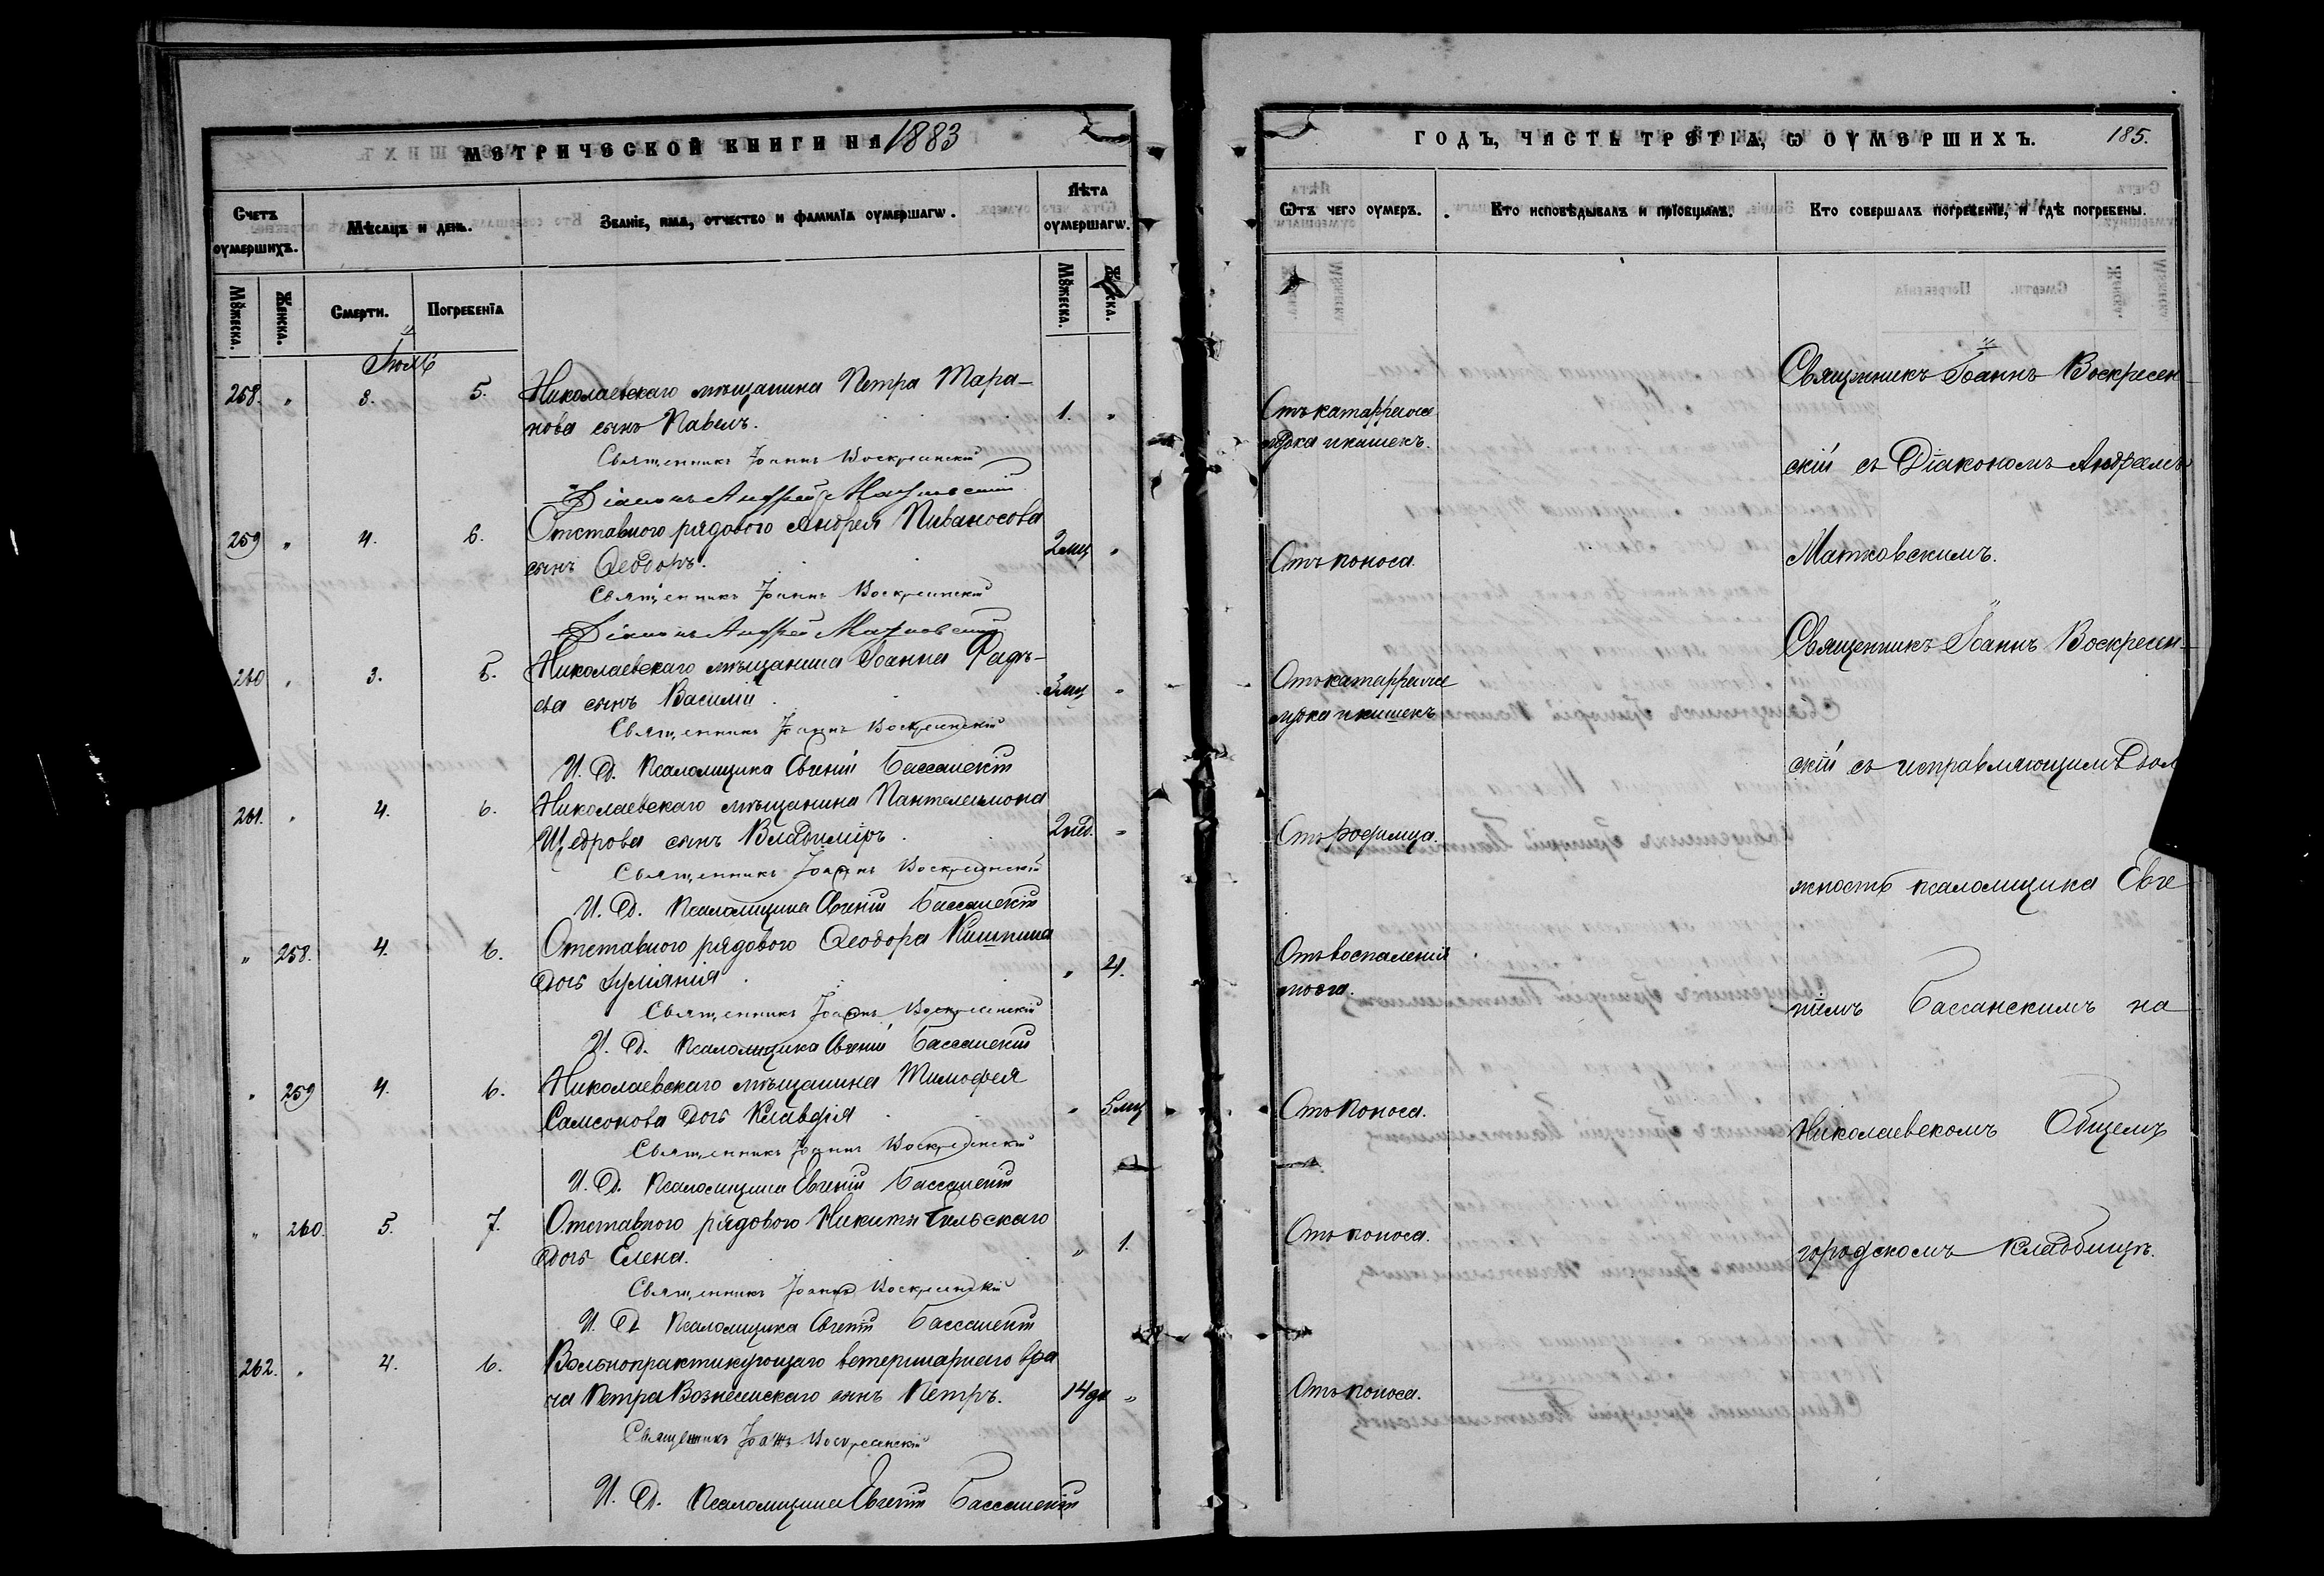 МЕТРИЧЕСКОЙ КНИГИ НА 1883
Счетъ оумершихъ.
Мѣсяцъ и день.
Званіе, имя, отчество и фамилія оумершагѡ.
Лѣта оумершагѡ.
Мꙋжеска.
Женска.
Смерти.
Погребенїя
Мꙋжеска.
Іюль
258. " 3. 5. Николаевскаго мѣщанина Петра Тара-
нова сынъ Павелъ. 1. "
Священникъ Іоаннъ Воскресенскій
Діаконъ Андрей Матковскій
259 " 4. 6. Отставного рядового Андрея Пиваносова
сынъ Ѳеодоръ. 2 мц "
Священникъ Іоаннъ Воскресенскій
Діаконъ Андрей Матковскій
260 " 3. 5. Николаевскаго мѣщанина Іоанна
ева сынъ Василій. мц "
Священникъ Іоаннъ Воскресенскій
И. Д. Псаломщика Евгеній Бассанскій
261. " 4. 6. Николаевскаго мѣщанина Пантелеимона
Щедрова сынъ Владиміръ. 2 нед. "
Священникъ Іоаннъ Воскресенскій
И. Д. Псаломщика Евгеній Бассанскій
" 258. 4. 6. Отставного рядового Ѳеодора Кишкина
дочь Іуліанія. "
Священникъ Іоаннъ Воскресенскій
И. Д. Псаломщика Евгеній Бассанскій
" 259 4. 6. Николаевскаго мѣщанина Тимофея
Самсонова дочь Клавдія " 5 мц
Священникъ Іоаннъ Воскресенскій
И. Д. Псаломщика Евгеній Бассанскій
" 260. 5. 7. Отставного рядового Никиты Бельскаго
дочь Елена. " 1.
Священникъ Іоаннъ Воскресенскій
И. Д. Псаломщика Евгеній Бассанскій
262. " 4. 6. Вольнопрактикующаго ветеринарнаго вра
ча Петра Вознесенскаго сынъ Петръ. 14 дн "
Священникъ Іоаннъ Воскресенскій
И. Д. Псаломщика Евгеній Бассанскій
ГОДЪ, ЧАСТЬ ТРЕТІѦ, Ѡ ОУМЕРШИХЪ. 185.
Ѿтъ чего оумеръ.
Кто исповѣдывалъ и прїобщалъ.
Кто совершалъ погребенїе, и гдѣ погребены.
Отъ катарра
и кишекъ.
Отъ поноса.
Отъ катарра
и кишекъ
Отъ родимца.
Отъ воспаленія
мозга.
Отъ поноса.
Отъ поноса.
Отъ поноса.
Священникъ Іоаннъ Воскресен-
скій съ Діакономъ Андреемъ
Матковскимъ.
Священникъ Іоаннъ Воскресен-
скій съ исправляющимъ дол
жность псаломщика Евге
ніемъ Бассанскимъ на
Николаевскомъ Общемъ
городскомъ кладбищѣ.